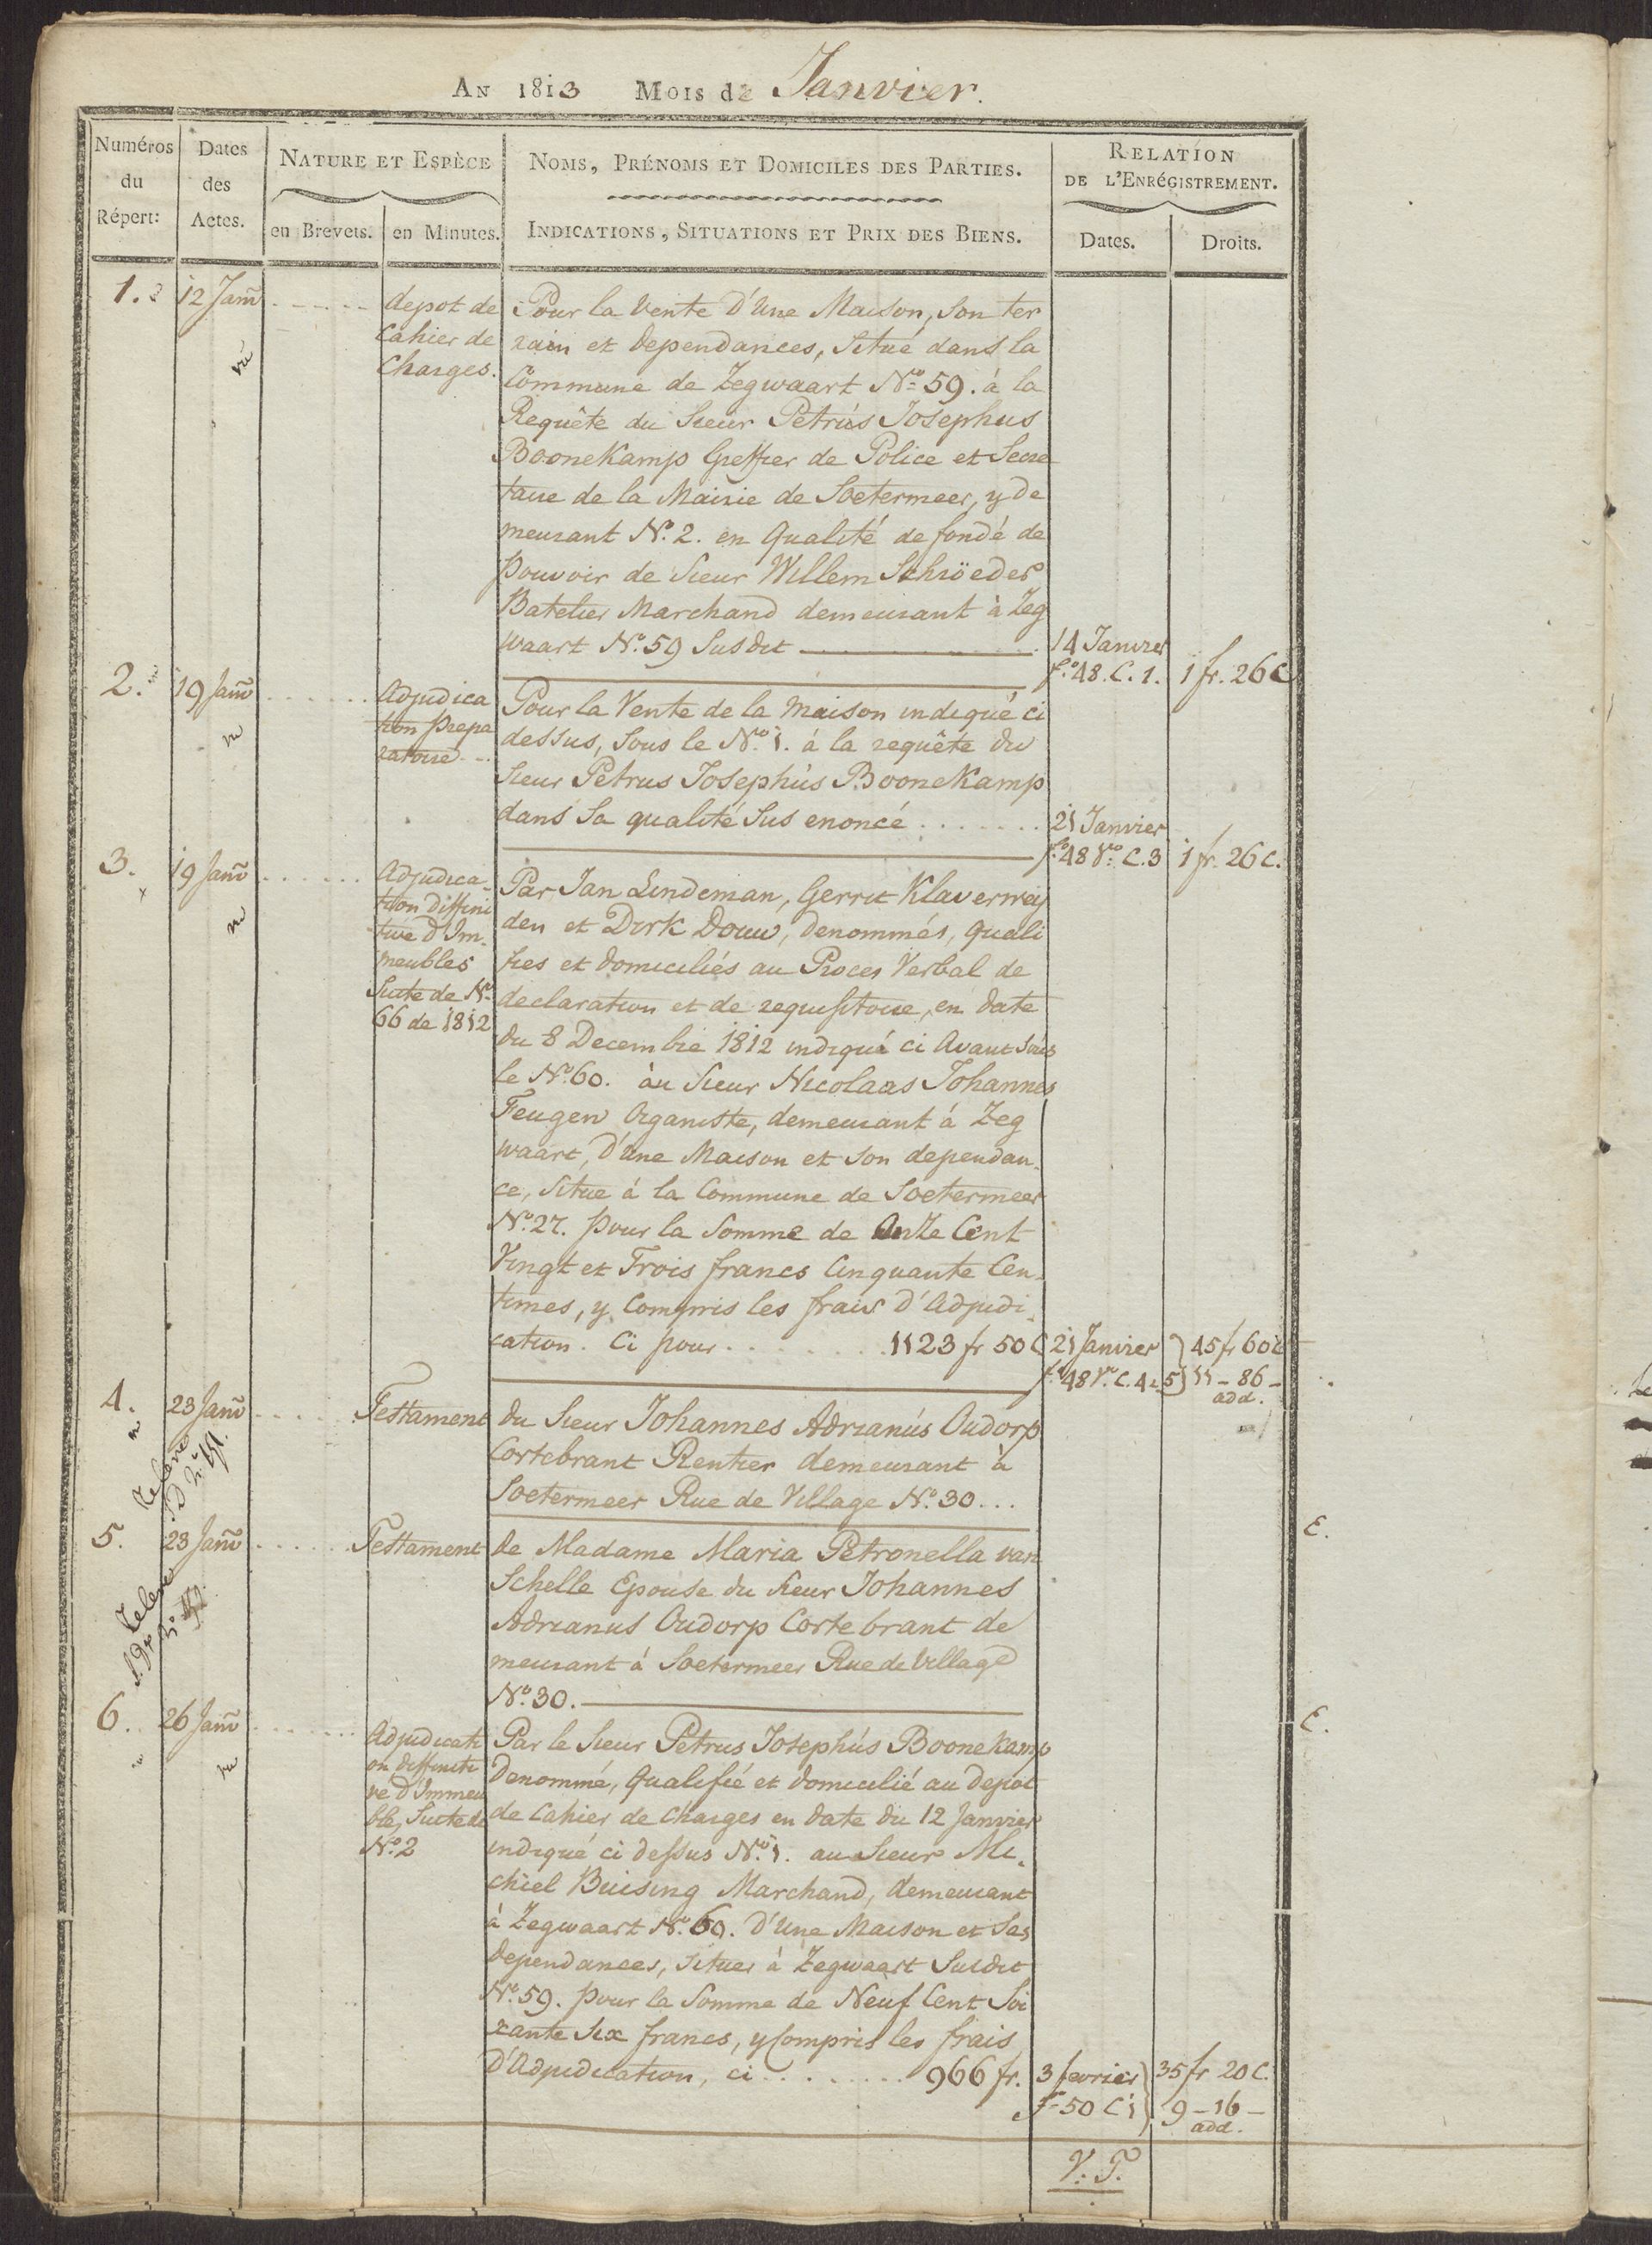 AN 1813 MOIS de Janvier.
Numéros du Répert:
Dates des Actes.
NATURE ET ESPÈCE
en Brevets.
en Minutes.
NOMS, PRÉNOMS ET DOMICILES DES PARTIES.
INDICATIONS, SITUATIONS ET PRIX DES BIENS.
RELATION
DE L'ENRÉGISTREMENT.
Dates.
Droits.
1.
12 Janv
depot de
Cahier de
Charges.
Pour la Vente d'Une Maison, Son ter
rain et dependances, Situé dans la
Commune de Zegwaart No 59. à la
Requête du Sieur Petrus Josephus
Boonekamp Greffier de Police et Secre
taire de la Mairie de Soetermeer, y de
meurant No. 2. en Qualité de fondé de
pouvoir de Sieur Willem Schröeder
Batelier Marchand demeurant à Zeg
waart No. 59 Susdit
14 Janvier
fo. 48. C. 1.
1 fr. 26 C
2.
19 Janv
Adjudica
tion prepa
ratoire
Pour la Vente de la Maison indiqué ci
dessus, Sous le No. 1. à la requête du
Sieur Petrus Josephus Boonekamp
dans Sa qualité Sus enoncé
21 Janvier
fo. 48 Vo. C. 3
1 fr. 26 C.
3.
19 Janv
Adjudica-
tion diffini
tive d'Im-
meubles
Suite de No
66 de 1812
Par Jan Lindeman, Gerrit Klaverwey
den et Dirk Douw, denommés, quali
fies et domiciliés au Proces Verbal de
declaration et de requisitoire, en date
du 8 Decembre 1812 indiqué ci Avant Sous
le No. 60. au Sieur Nicolaas Johannes
Feugen Organiste, demeurant á Zeg
waart, d'Une Maison et Son dependan-
ce, Situe á la Commune de Soetermeer
No. 27. pour la Somme de Onze Cent
Vingt et Trois francs Cinquante Cen-
times, y Compris les frais d'Adjudi
cation. Ci pour 1123 fr 50 C
21 Janvier
fo. 48 Vo. C. 4 5
45 fr 60 c
11 - 86 -
add.
4.
23 Janv
Testament
du Sieur Johannes Adrianus Oudorp
Cortebrant Rentier demeurant à
Soetermeer Rue de Village No. 30...
5.
23 Janv
Testament
de Madame Maria Petronella van
Schelle Epouse du Sieur Johannes
Adrianus Oudorp Cortebrant de
meurant á Soetermeer Rue de Village
No. 30.
E.
6.
26 Janv
Adjudicati
on diffiniti
ve d'Immeu
ble, Suite de
No. 2
Par le Sieur Petrus Josephus Boonekamp
denommé, Qualifié et domicilié au depot
de Cahier de Charges en date du 12 Janvier
indiqué ci dessus No. 1. au Sieur Mi-
chiel Buising Marchand, demeurant
à Zegwaart No. 60. d'Une Maison et Ses
dependances, Situes à Zegwaart Susdit
No. 59. pour la Somme de Neuf Cent Soi
xante Six francs, y Compris les frais
d'Adjudication, ci 966 fr.
3 fevrier
fo 50 C 1
35 fr 20 C.
9 - 16 -
add.
E.
V. T.